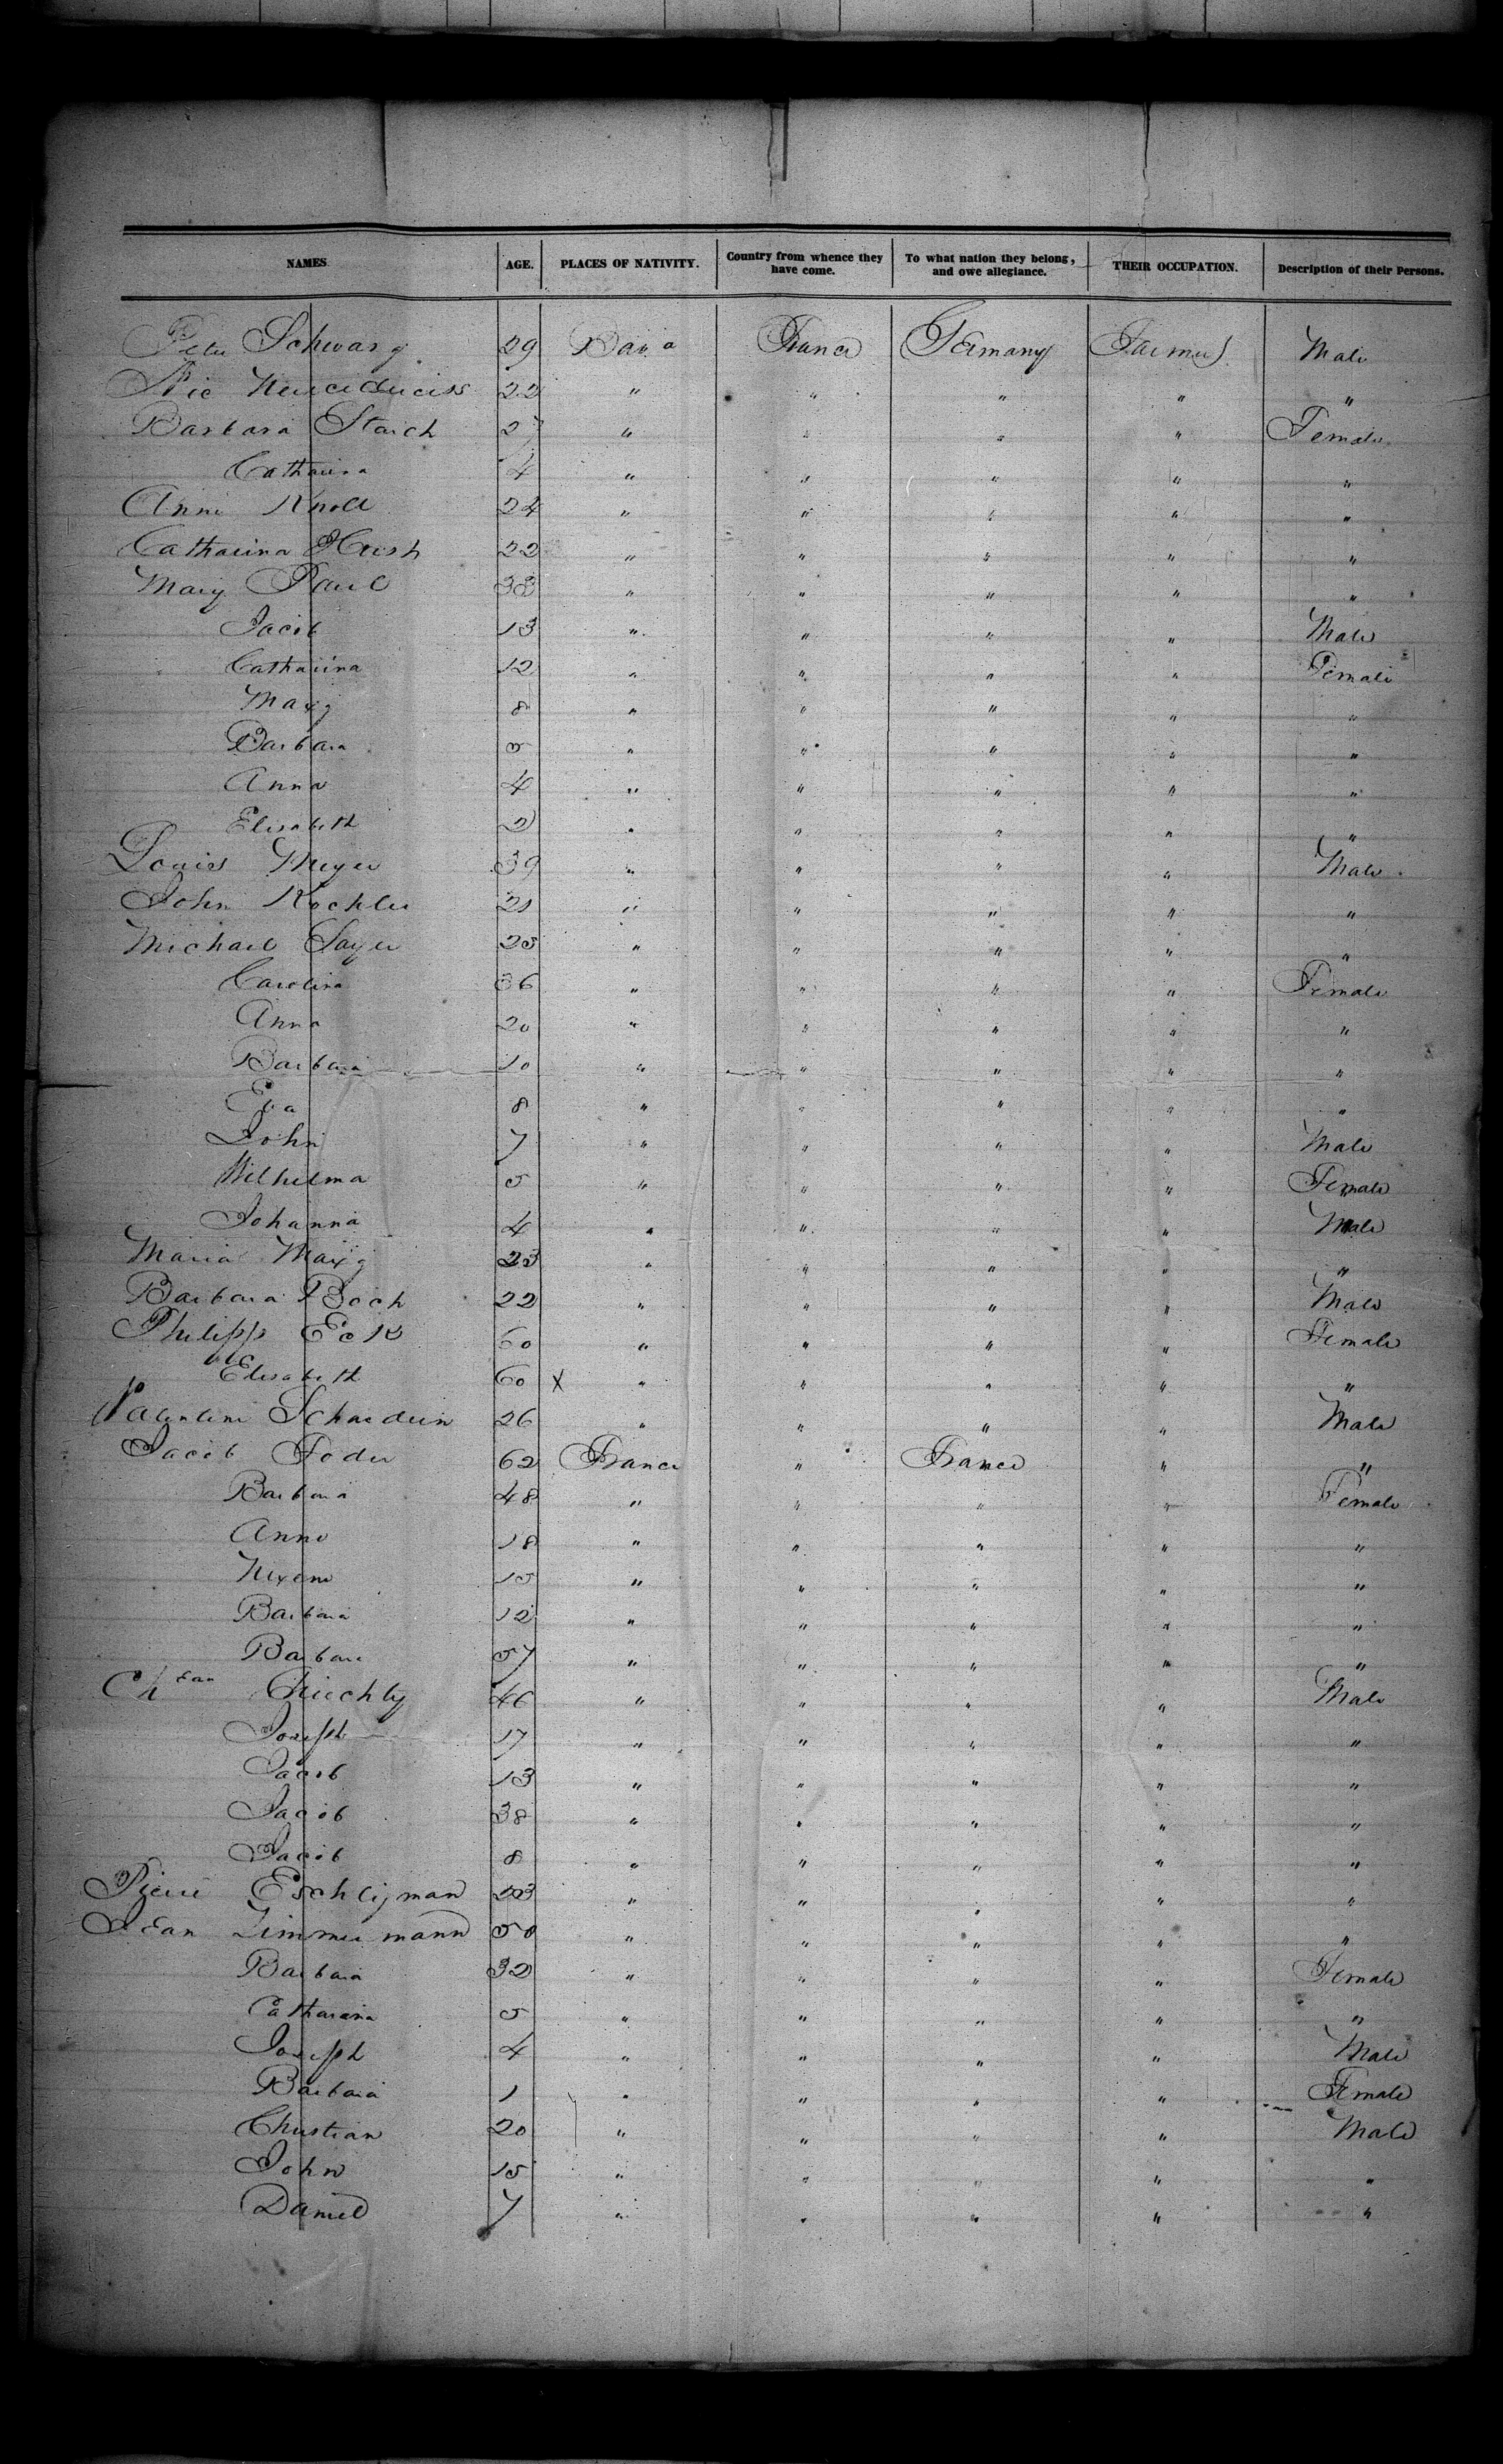 NAMES. AGE. PLACES OF NATIVITY. Country from whence they have come. To what nation they belong, and owe allegiance. THEIR OCCUPATION. Description of their Persons.
Peter Schwarz 29 Bava France Germany Farmer Male
Nic 22 " " " " "
Barbara Starck 27 " " " " Female
Catharina 4 " " " " "
Anna Knoll 24 " " " " "
Catharina 22 " " " " "
Mary Paul 33 " " " " "
Jacob 13 " " " " Male
Catharina 12 " " " " Female
Mary 8 " " " " "
Barbara 5 " " " " "
Anna 4 " " " " "
Elisabeth 2 " " " " "
Louis Meyer 39 " " " " Male
John Kochler 21 " " " " "
Michael Sayer 25 " " " " "
Carolina 36 " " " " Female
Anna 20 " " " " "
Barbara 10 " " " " "
Eva 8 " " " " "
John 7 " " " " Male
Wilhelma 5 " " " " Female
Johanna 4 " " " " Male
Maria 23 " " " " "
Barbara Boch 22 " " " " Male
Philipp Eck 60 " " " " Female
Elisabeth 60 X " " " " "
Valentine Schardein 26 " " " " Male
Jacob Foder 62 France " France " "
Barbara 48 " " " " Female
Anna 18 " " " " "
15 " " " " "
Barbara 12 " " " " "
Barbara 57 " " " " "
Ch ean 46 " " " " Male
Joseph 17 " " " " "
Jacob 13 " " " " "
Jacob 38 " " " " "
Jacob 8 " " " " "
Pierre Eschligman 23 " " " " "
Jean Zimmermann 50 " " " " "
Barbara 32 " " " " Female
Catharina 5 " " " " "
Joseph 4 " " " " Male
Barbara 1 " " " " Female
Christian 20 " " " " Male
John 15 " " " " "
Daniel 7 " " " " "